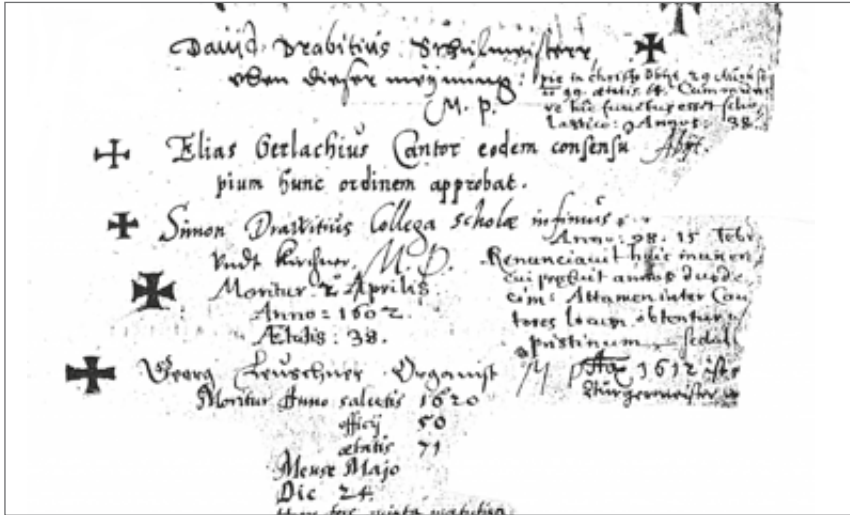 David Drabitius Schulmeisterr
eben dieser meÿnung:
M. p.
pie in christo obÿt 29 August
ao 99. ætatis 64. Cum
hic functus esset scho
lastico: Annos: 38.
Elias Gerlachius Cantor eodem consensu Abÿt.
pium hunc ordinem approbat.
Simon Drabitius Collega scholæ infimus
vndt Kirchner. M. P.
Moritur 2 Aprilis
Anno: 1602.
Ætatis: 38.
Anno: 98. 15 Febr
Renunciavit huic muneri
cui præbuit annos duode
cim: Attamen inter Can
tores locum obtentur
pristinum
Georg Leuschner Organist
Moritur Anno salutis 1620
officij 50
ætatis 71
Mense Majo
Die 24.
1612 ist
Bürgermeister